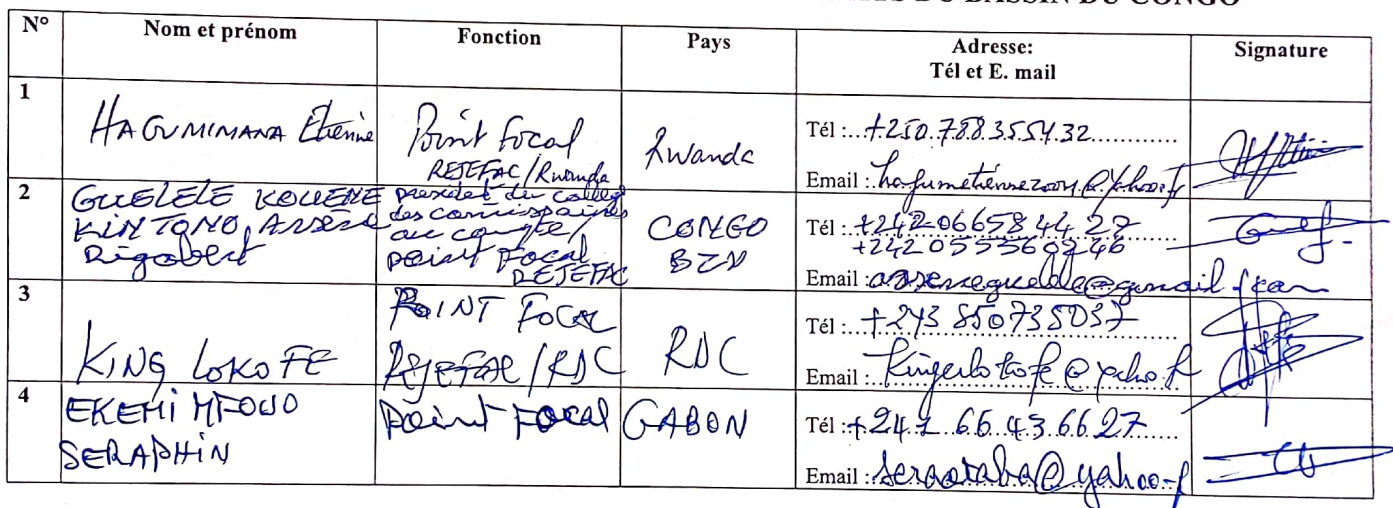 DU BASSIN DU CONGO
N° Nom et prénom Fonction Pays Adresse: Tél et E. mail Signature
1
HAGUMIMANA Etienne
Point focal
REJEFAC/Rwanda
Rwanda
Tél :...+250.788.3555432
Email :
2
GUELELE KOUENE
KINTONO, Arsène
Rigobert
président du collège
des commissaires
au compte/
point Focal
REJEFAC
CONGO
BZV
Tél : +242066584427
+242055560246
Email :
3
KING LOKOFE
POINT FOCAL
REJEFAC/RDC
RDC
Tél : +243 850735037
Email :
4
EKEMI MFOUO
SERAPHIN
Point Focal
GABON
Tél : +241 66 43 66 27
Email :